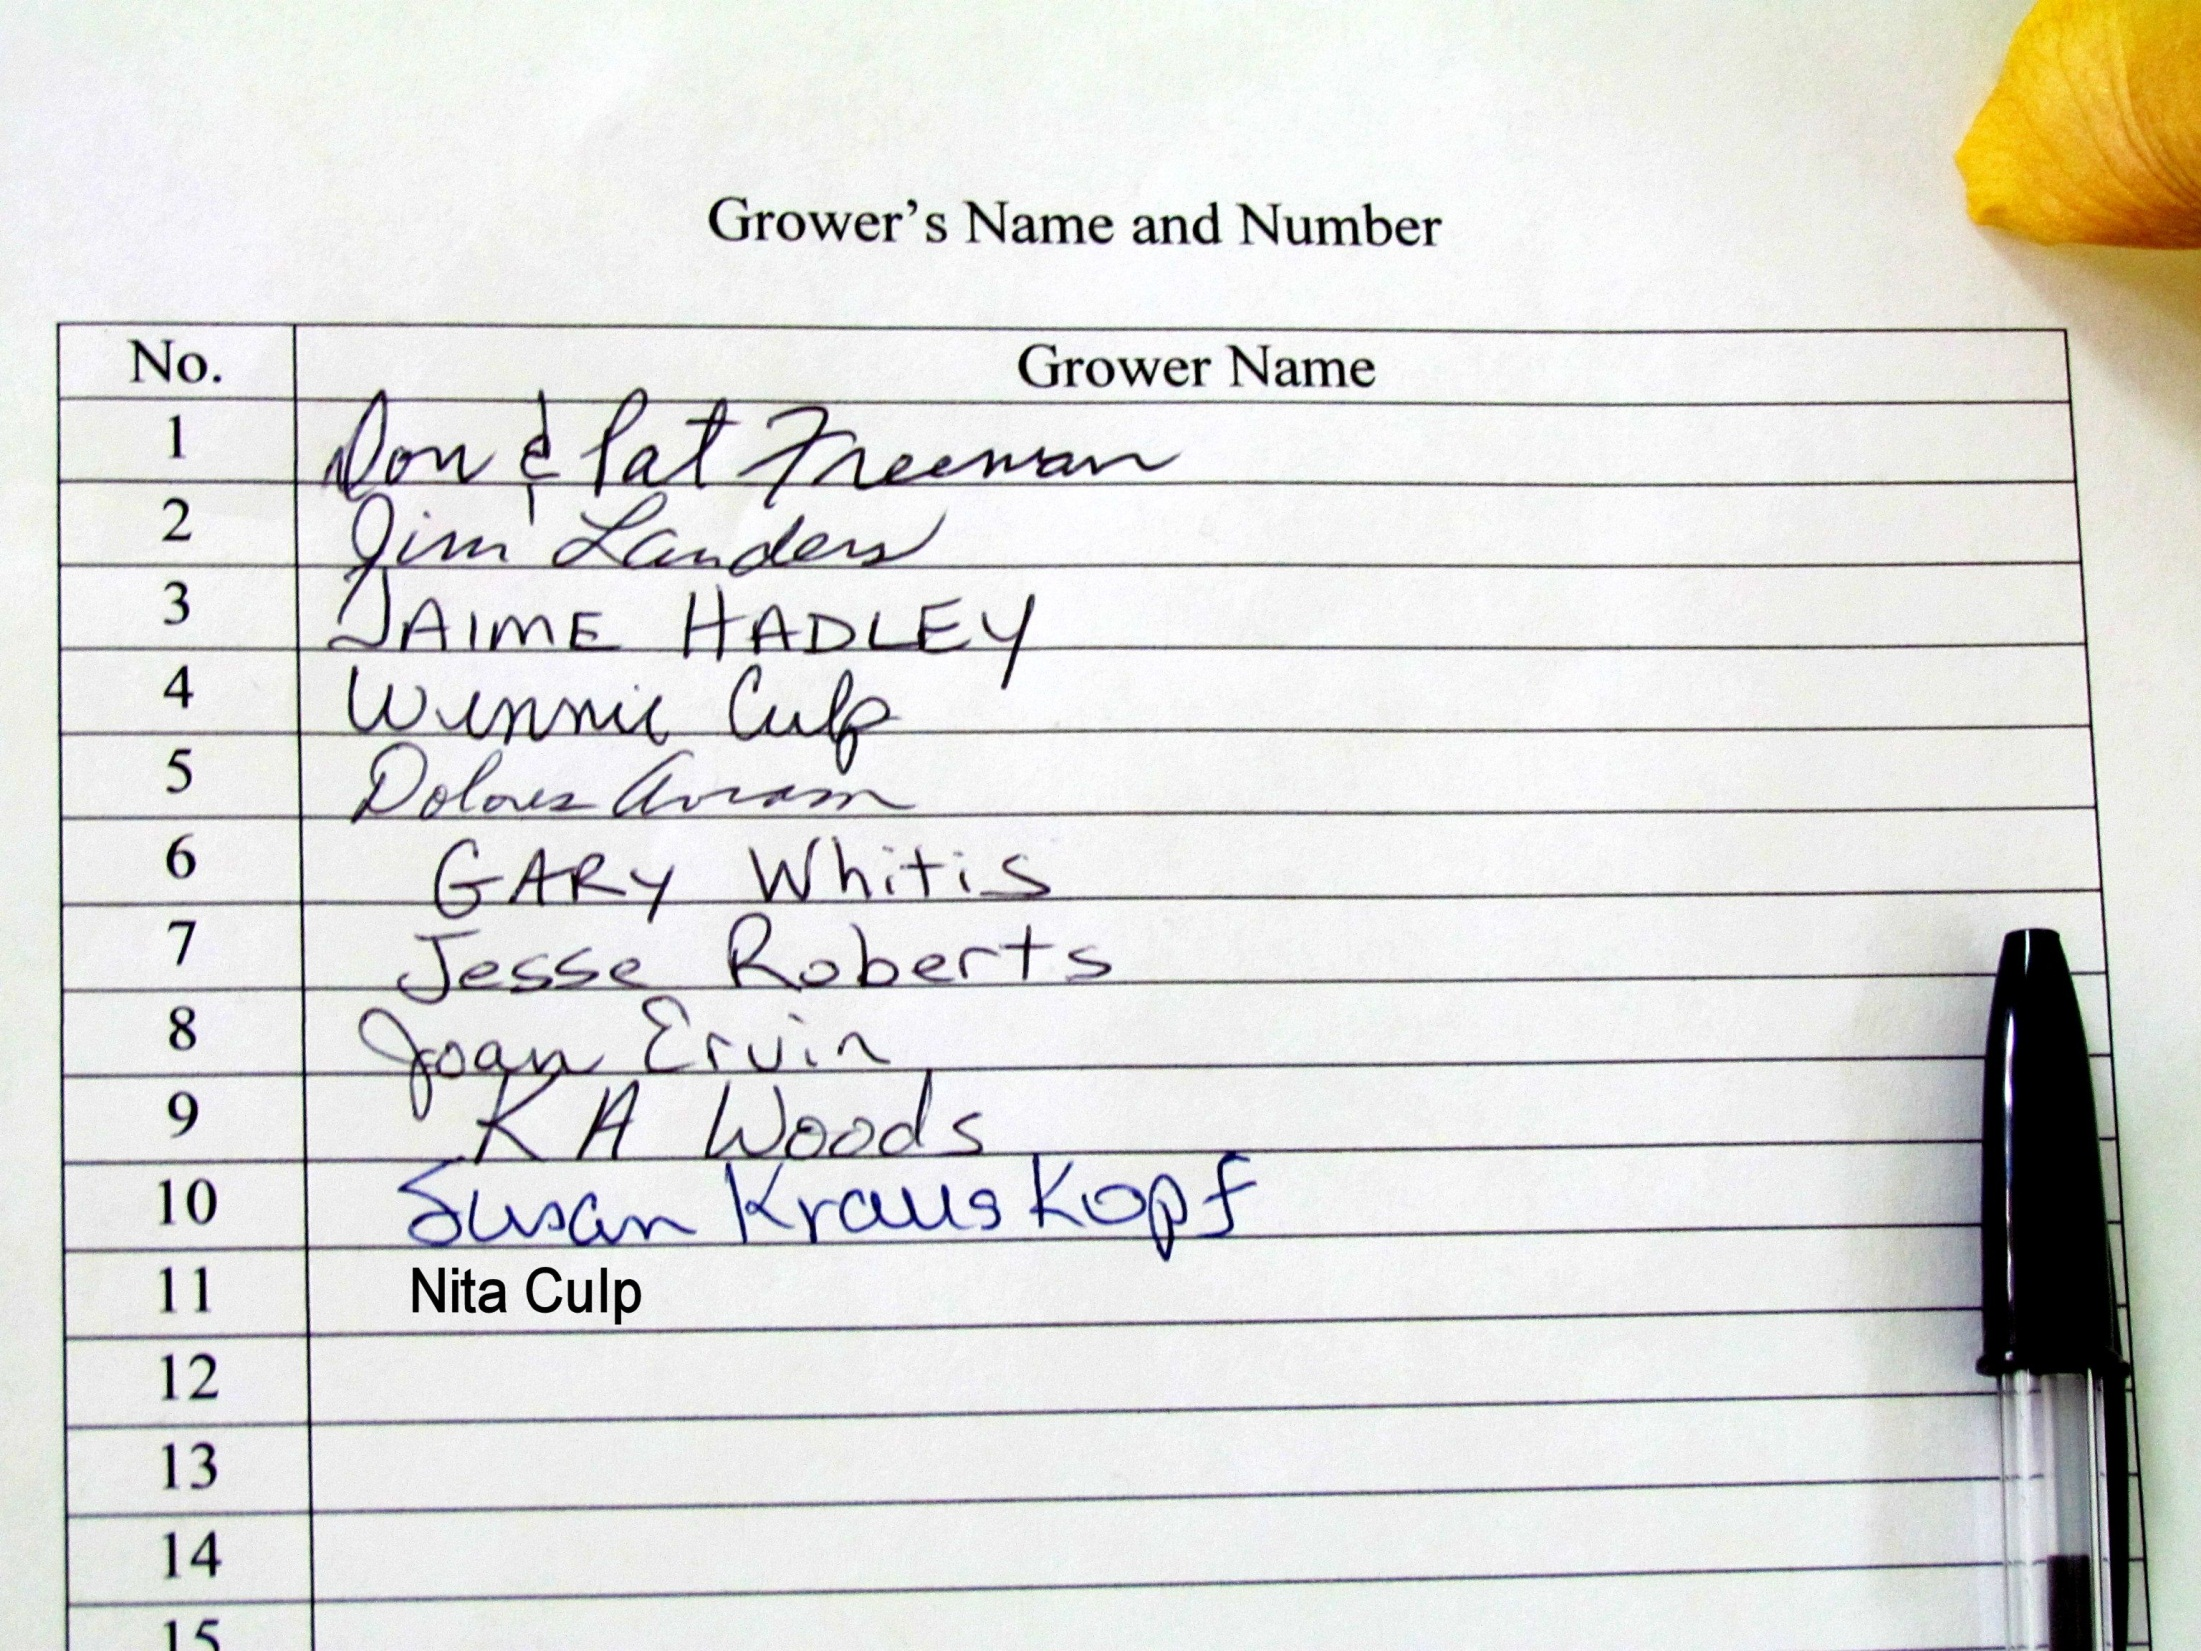 Grower's Name and Number
No. Grower Name
1 Don & Pat Freeman
2 Jim Landers
3 JAIME HADLEY
4 Winnie Culp
5 Dolores Avram
6 GARY Whitis
7 Jesse Roberts
8 Joan Ervin
9 KA Woods
10 Susan Krauskopf
11 Nita Culp
12
13
14
15